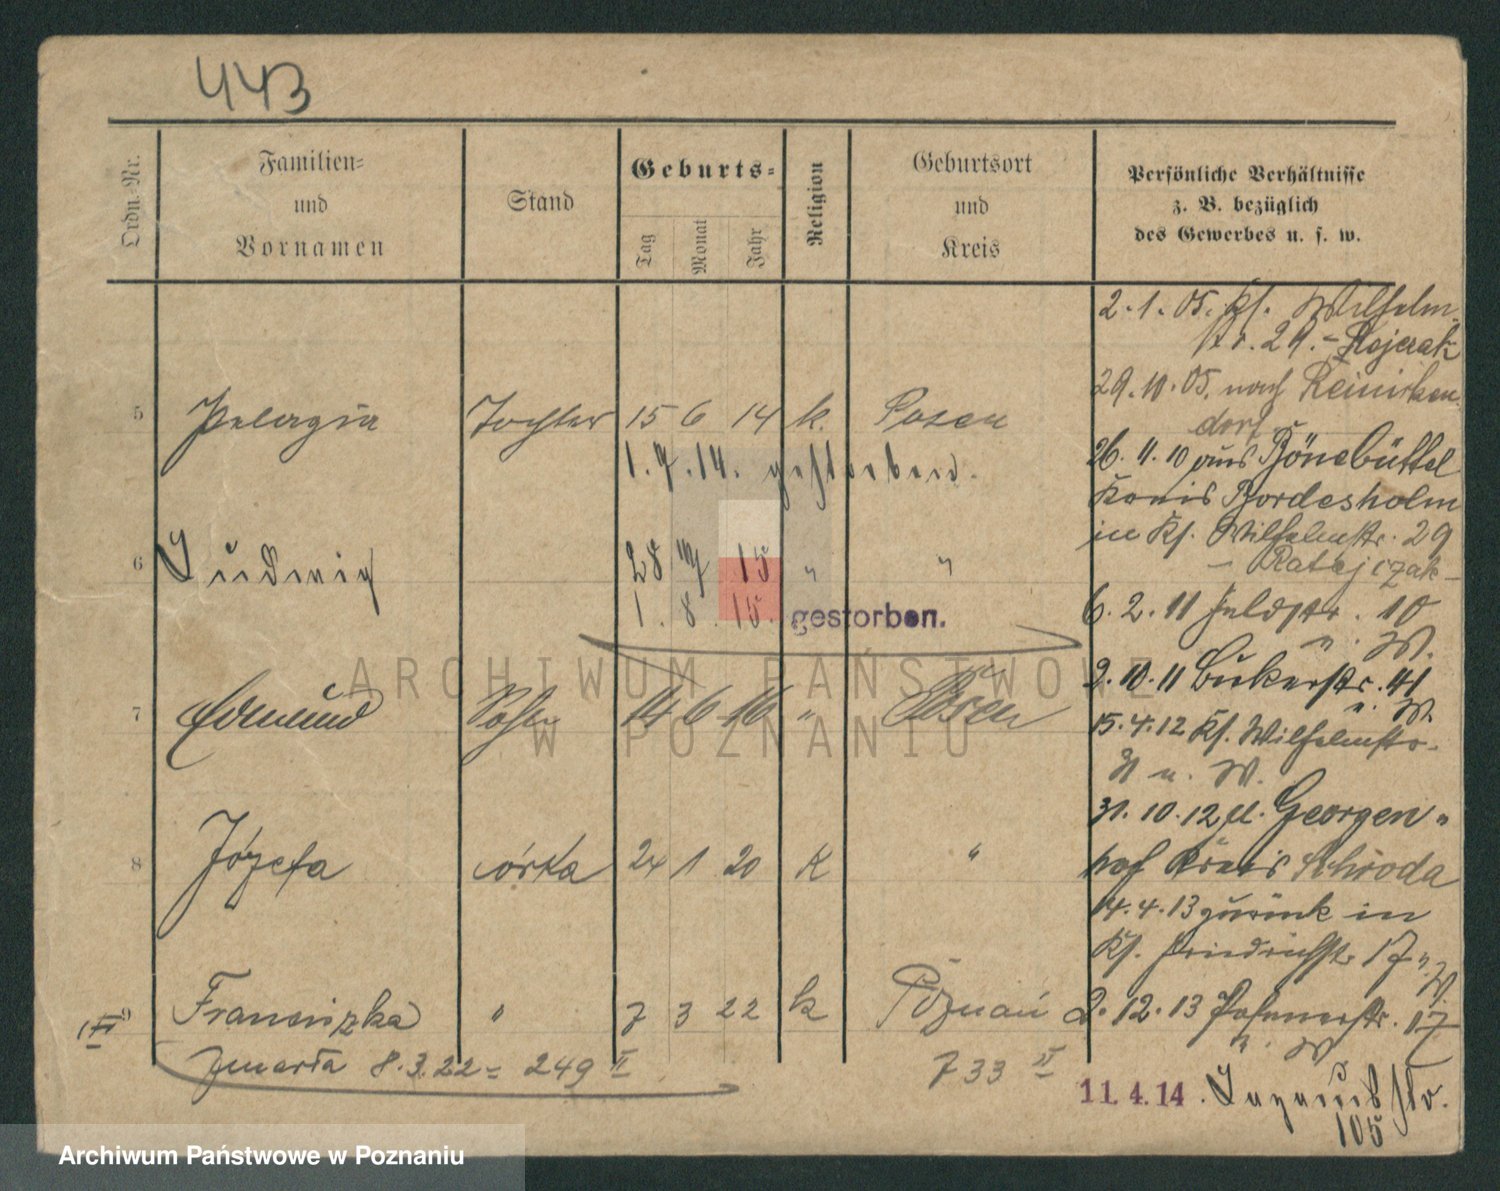 443
Ordn. Nr.
Familien-
und
Vornamen
Stand
Geburts-
Tag
Monat
Jahr
Religion
Geburtsort
und
Kreis
Persönliche Verhältnisse
z. B. bezüglich
des Gewerbes u. s. w.
5 Pelagia Tochter 15 6 14 k. Posen
1. 7. 14. gestorben.
6 Ludwig 28 7 15 " "
1. 8. 15. gestorben.
7 Edmund Sohn 14 6 16 " Posen
8 Józefa córka 24 1 20 k "
9 Franciszka " 7 3 22 k Poznań
zmarła 8.3.22 = 249 II
733 II
2. 1. 05. Kl. Wilhelm-
str. 29. - Ratajczak
29. 10. 05. nach Reinicken-
dorf
26. 11. 10 aus Bönebüttel
Kreis Bordesholm
in Kl. Wilhelmstr. 29
- Ratajczak -
6. 2. 11 Feldstr. 10
u. W.
2. 10. 11 Bukerstr. 41
u. W.
15. 4. 12 Kl. Wilhelmstr.
31 u. W.
31. 10. 12 n. Georgen-
hof Kreis Schroda
14. 4. 13 zurück in
Kl. Friedrichstr. 17 u. W.
2. 12. 13 Posenerstr. 17
u. W
11. 4. 14. str.
105
ARCHIWUM PAŃSTWOWE
W POZNANIU
Archiwum Państwowe w Poznaniu